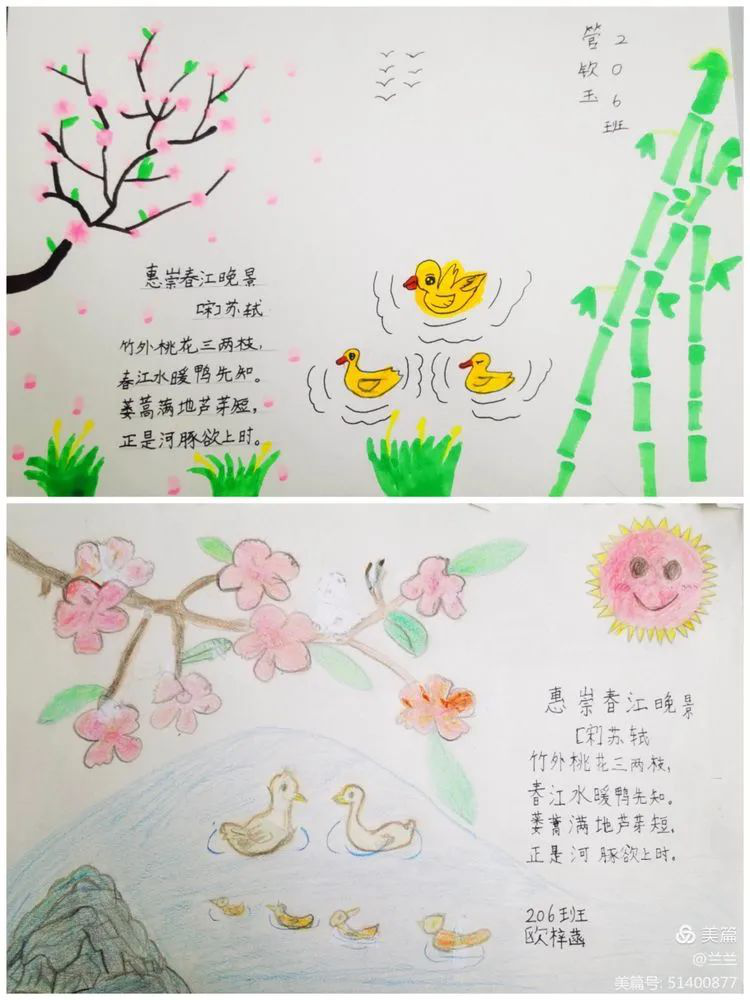 管钦玉
206班
惠崇春江晚景
[宋]苏轼
竹外桃花三两枝，
春江水暖鸭先知。
蒌蒿满地芦芽短，
正是河豚欲上时。
惠崇春江晚景
[宋]苏轼
竹外桃花三两枝，
春江水暖鸭先知。
蒌蒿满地芦芽短，
正是河豚欲上时。
206班
欧梓菡
美篇
@兰兰
美篇号: 51400877